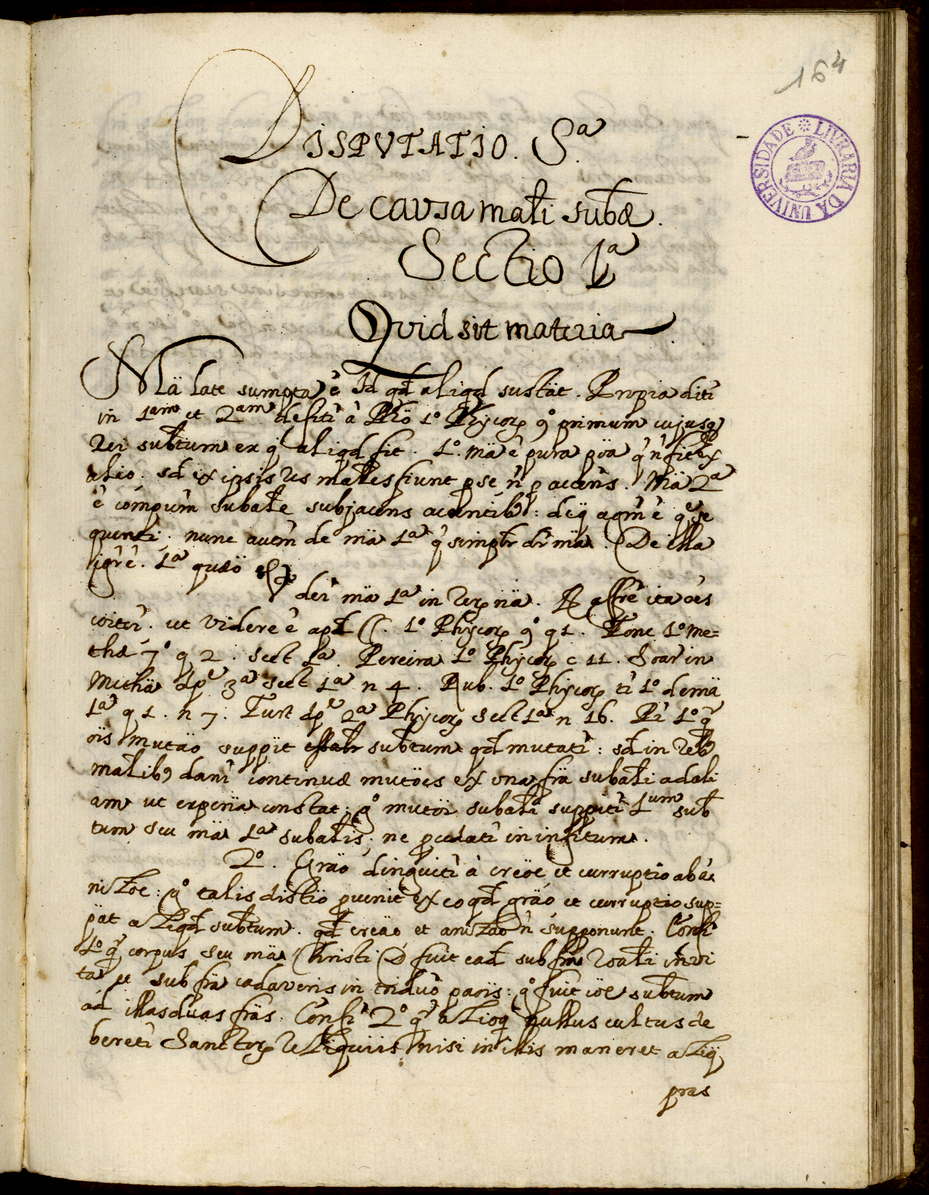 164
LIVRARIA DA UNIVERSIDADE
DISPVTATIO. 5ª
De causa matli subæ.
Sectio 1ª
Qvid sit materia
Mã late sumpta ê Id qd aliqd sustãt. Propia diti
in 1am et 2am. defiti â Phõ 1º Phycorp 9º primum cujusq
Rei subtum ex q aliqd fit. 1º. mã ê pura põa q ñ fie ex
alio. sd ex ipsis res matles fiunt p se ñ p accens. Mã 2ª
ê compum subale subjacens
quenti. nunc autem de mã 1ª q simplr dr ma. De illa
igr ê. 1ª quæo
deri mã 1ª in rerp nã. R affre ita oes
coiter. ut videre ê apd CC. 1º Phycorp 9º q 1. Fonc 1º me=
thæ 7º q 2. sect 1ª. Pereira 1º Phycorp c 11. Soar in
Methã dpe 3ª sect 1ª n 4. Rub. 1º Phycorp ti 1º de mã
1ª q 1. n 7. Turt dpe 2ª Phycorp sect 1ª n 16. Pr 1º q
ois mutão suppit subtum qd mutati: sd in reb9
matlib9 dani continuæ mutões ex una frã subali ad ali
am ut experiã constat: gº mutõi subali suppiti 1um sub
tum seu mã 1ª subalis, ne pcedati in infitum.
2º. Grão dinguiti â creõe et curruptio ab a
nizõe: gº talis distiõ puenit ex eo qd grão et curruptio sup=
pãt aliqd subtum. qd creão et anizão ñ supponunt. Confi
1º q corpus seu mã Christi D fuit ead sub frã in vi
ta et sub frã cadaveris in triduo: gº fuit ioe subtum
ad illas duas frãs. Confi 2º q alioq nullus cultus de
bereti Sanctorp reliquiis nisi in illis maneret aliq
pras